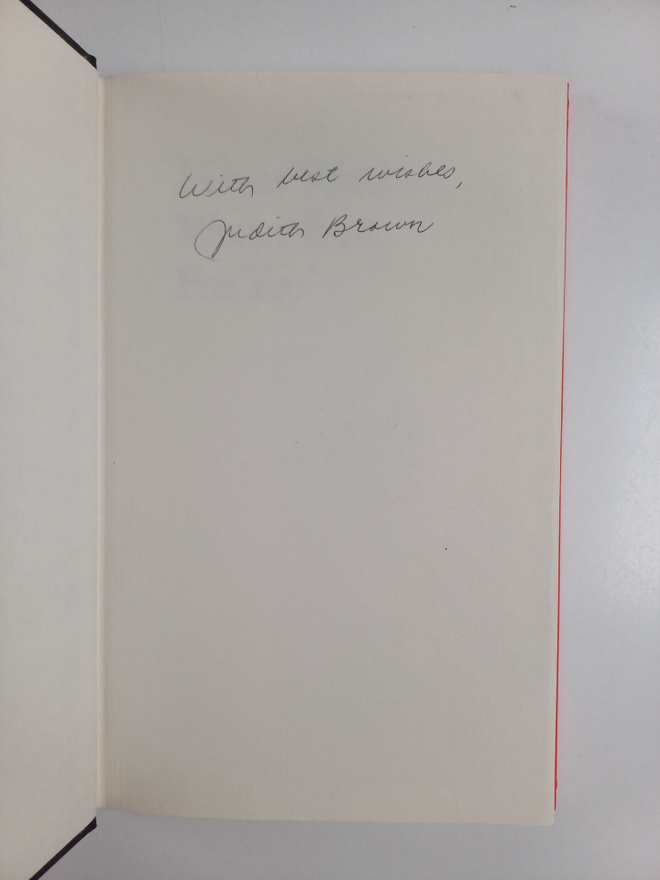 With best wishes,
Judith Brown